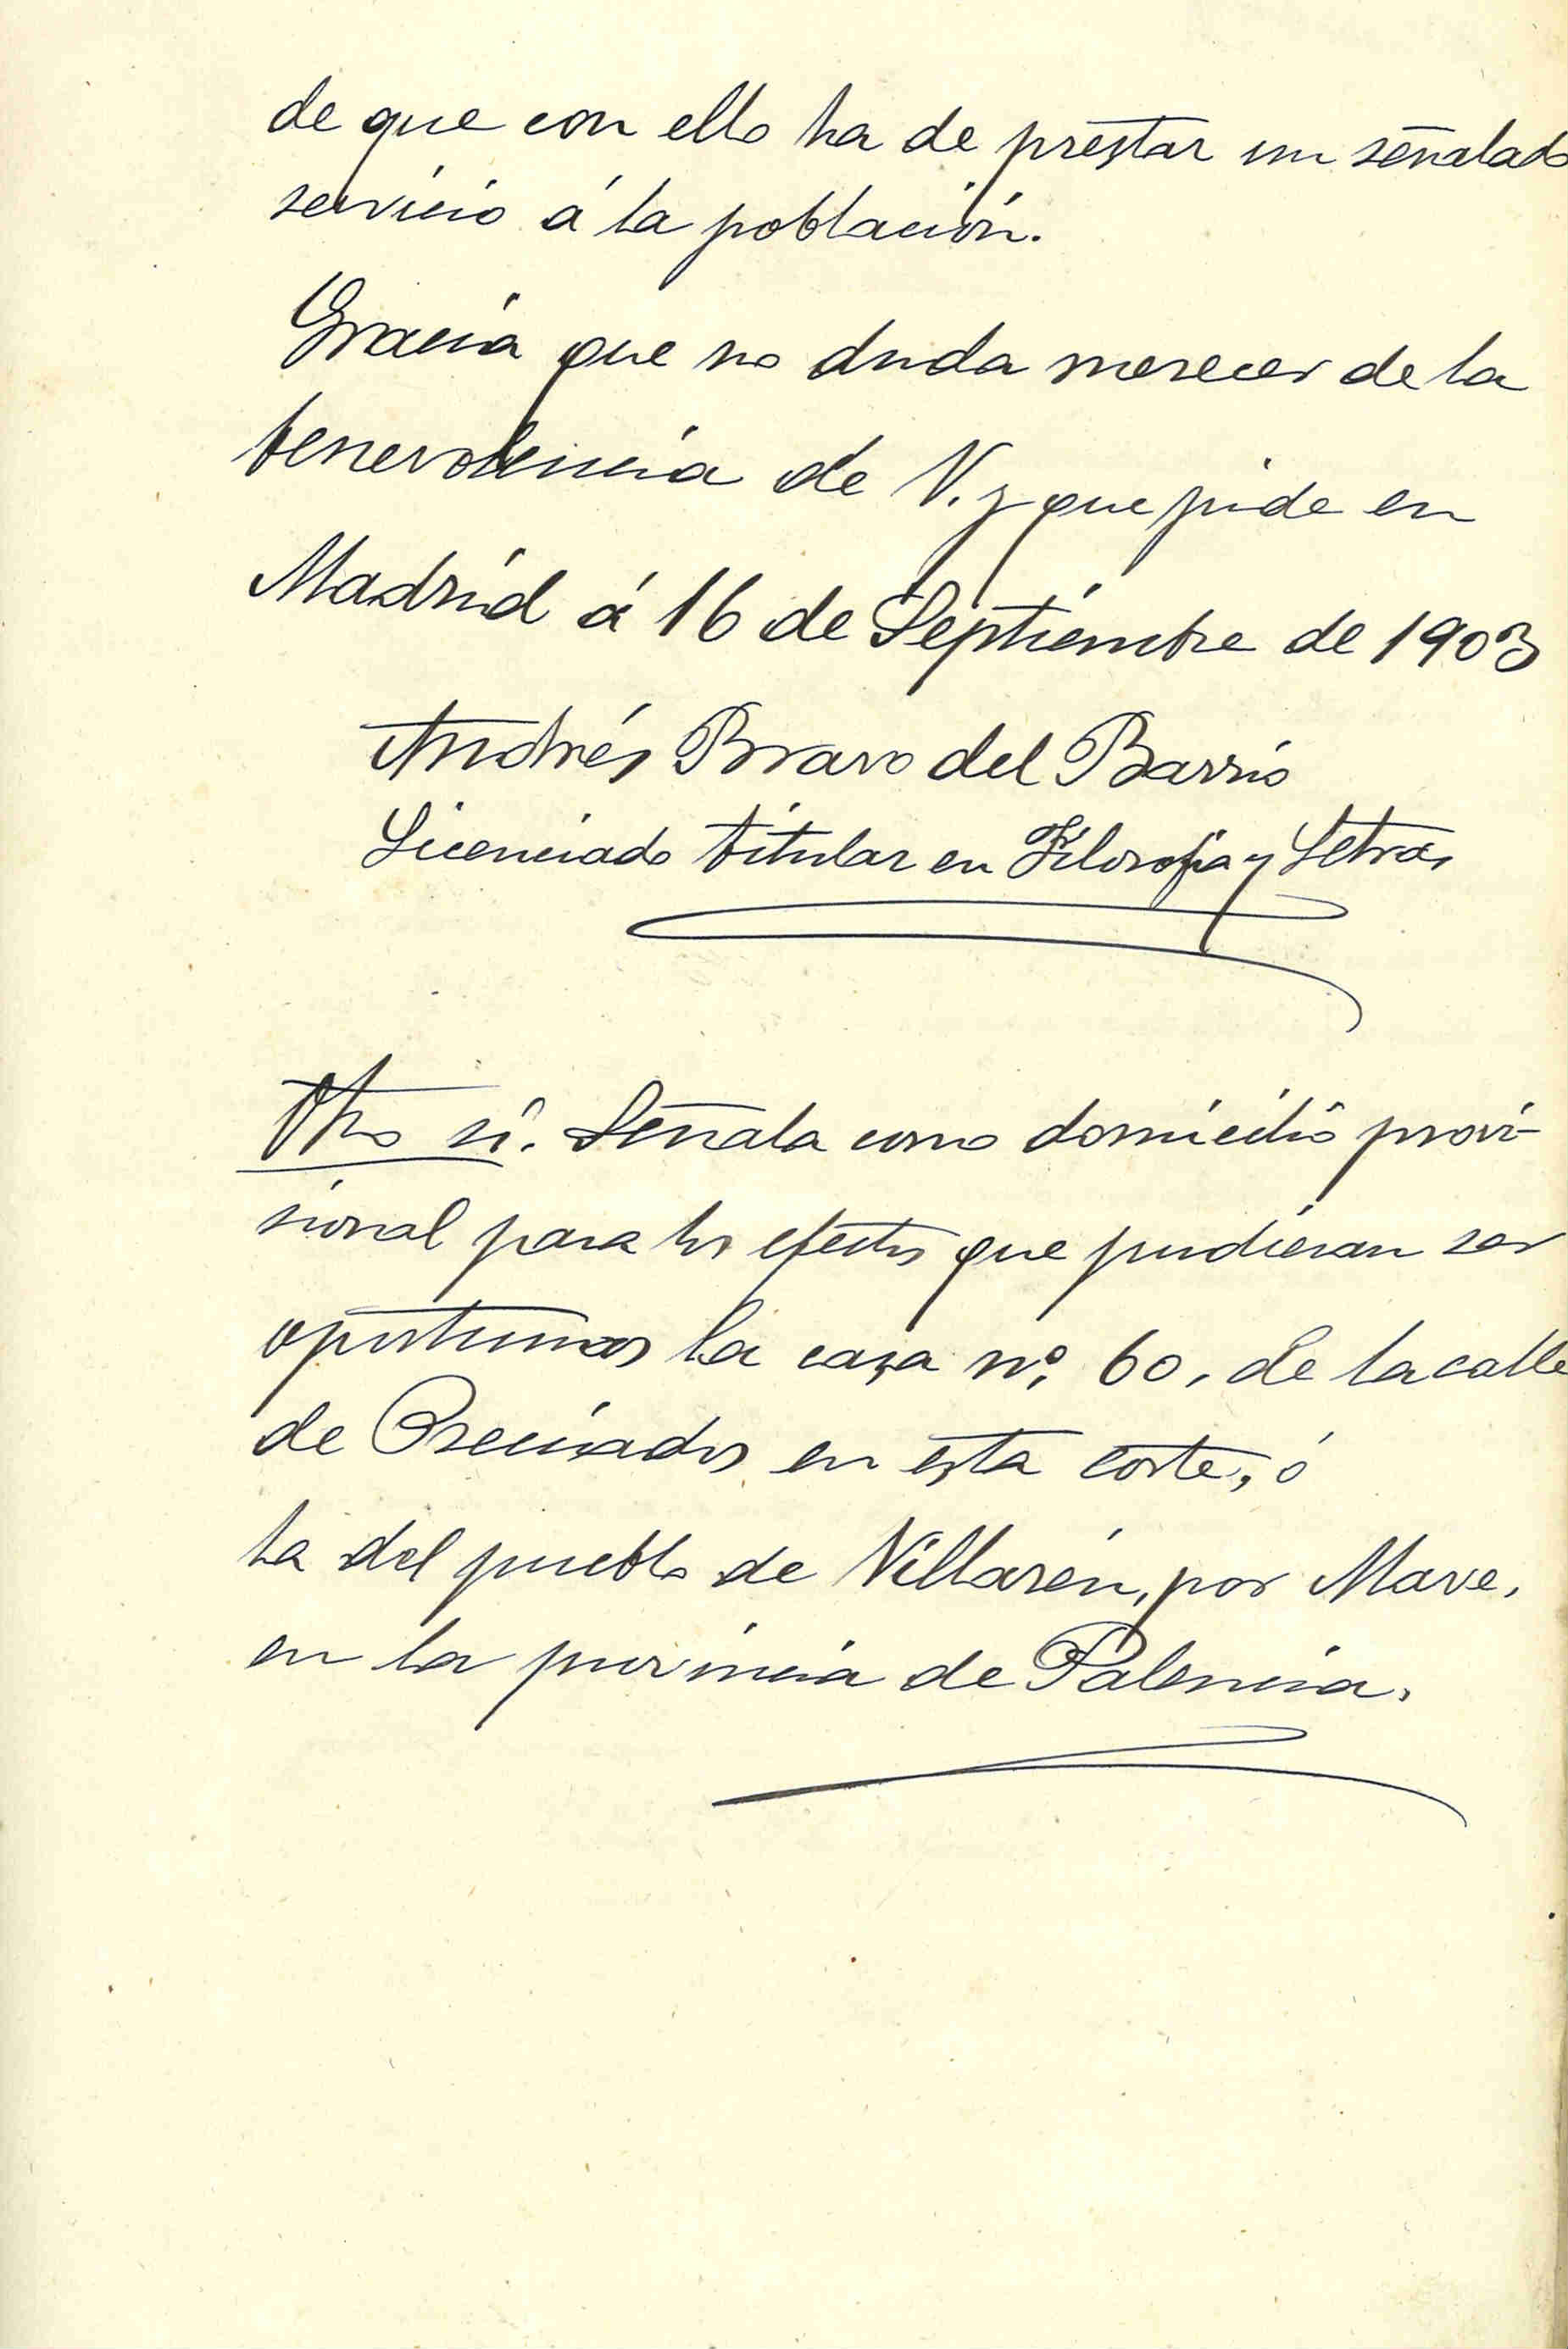 de que con ello ha de prestar un señalado
servicio á la población.
Gracia que no duda merecer de la
benevolencia de V. y que pide en
Madrid á 16 de Septiembre de 1903
Andrés Bravo del Barrio
Licenciado titular en Filosofia y Letras
Otro sí. Señala como domicilio provi-
sional para los efectos que pudieran ser
oportunos la casa nº 60, de la calle
de Preciados en esta corte, ó
la del pueblo de Villarén, por Mave,
en la provincia de Palencia.